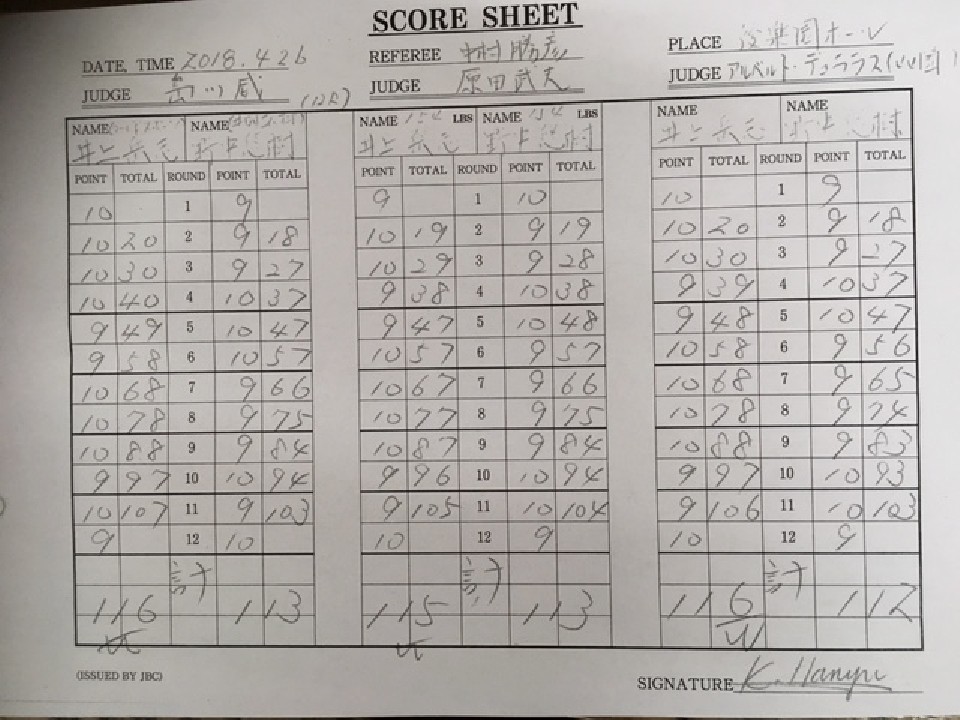 SCORE SHEET
DATE, TIME 2018.4.26 REFEREE 中村勝彦 PLACE 後楽園ホール
JUDGE 葛川 威 (12R) JUDGE 原田武夫 JUDGE アルベルト・
NAME NAME NAME 154 LBS NAME 154 LBS NAME NAME
井上岳志 野中悠樹 井上岳志 野中悠樹 井上岳志 野中悠樹
POINT TOTAL ROUND POINT TOTAL POINT TOTAL ROUND POINT TOTAL POINT TOTAL ROUND POINT TOTAL
10 1 9 9 1 10 10 1 9
10 20 2 9 18 10 19 2 9 19 10 20 2 9 18
10 30 3 9 27 10 29 3 9 28 10 30 3 9 27
10 40 4 10 37 9 38 4 10 38 9 39 4 10 37
9 49 5 10 47 9 47 5 10 48 9 48 5 10 47
9 58 6 10 57 10 57 6 9 57 10 58 6 9 56
10 68 7 9 66 10 67 7 9 66 10 68 7 9 65
10 78 8 9 75 10 77 8 9 75 10 78 8 9 74
10 88 9 9 84 10 87 9 9 84 10 88 9 9 83
9 97 10 10 94 9 96 10 10 94 9 97 10 10 93
10 107 11 9 103 9 105 11 10 104 9 106 11 10 103
9 12 10 10 12 9 10 12 9
計 計 計
116 113 115 113 116 112
W W W
(ISSUED BY JBC) SIGNATURE K. Hanyu